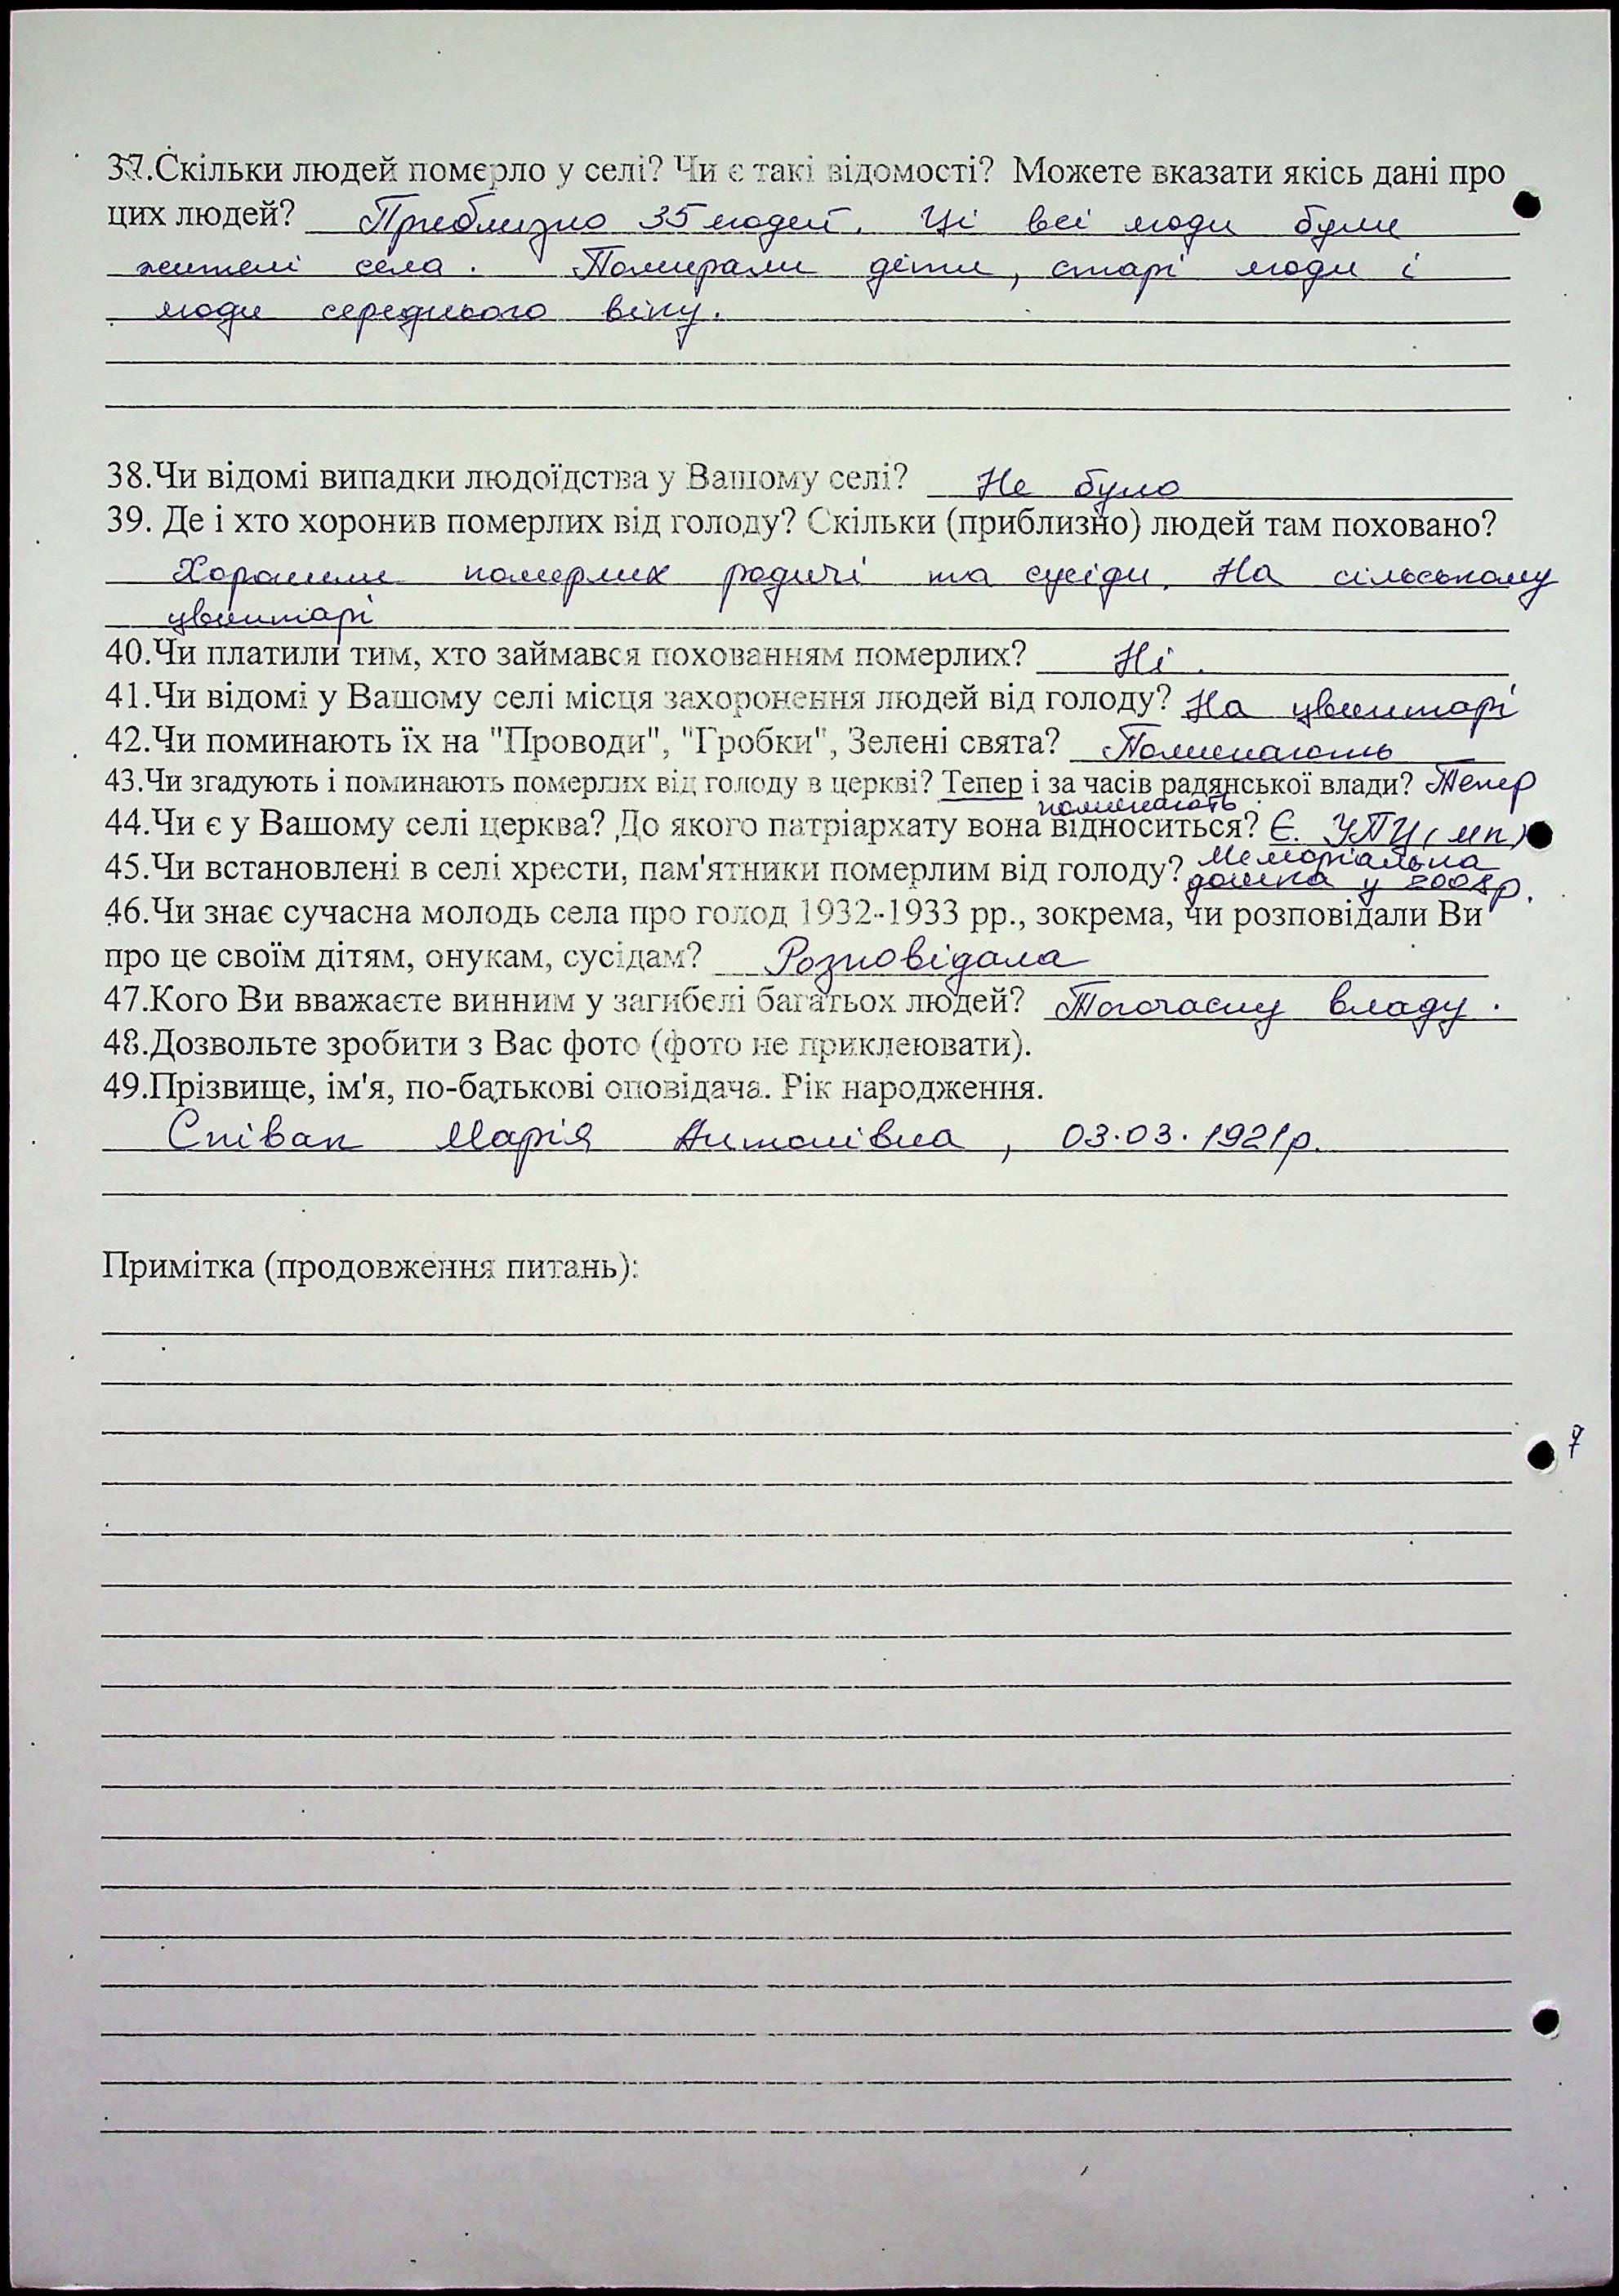 37.Скільки людей померло у селі? Чи є такі відомості? Можете вказати якісь дані про
цих людей? Приблизно 35 людей. Ці всі люди були
жителі села. Помирали діти, старі люди і
люди середнього віку.
38.Чи відомі випадки людоїдства у Вашому селі? Не було
39. Де і хто хоронив померлих від голоду? Скільки (приблизно) людей там поховано?
Хоронили померлих родичі та сусіди. На сільському
цвинтарі
40.Чи платили тим, хто займався похованням померлих? Ні.
41.Чи відомі у Вашому селі місця захоронення людей від голоду? На цвинтарі
42.Чи поминають їх на "Проводи", "Гробки", Зелені свята? Поминають
43.Чи згадують і поминають померлих від голоду в церкві? Тепер і за часів радянської влади? Тепер
поминають
44.Чи є у Вашому селі церква? До якого патріархату вона відноситься? Є. УПЦ (мп)
45.Чи встановлені в селі хрести, пам'ятники померлим від голоду? Меморіальна
дошка у 2008р.
46.Чи знає сучасна молодь села про голод 1932-1933 рр., зокрема, чи розповідали Ви
про це своїм дітям, онукам, сусідам? Розповідала
47.Кого Ви вважаєте винним у загибелі багатьох людей? Тогочасну владу.
48.Дозвольте зробити з Вас фото (фото не приклеювати).
49.Прізвище, ім'я, по-батькові оповідача. Рік народження.
Співак Марія Антонівна, 03.03.1921р.
Примітка (продовження питань):
7